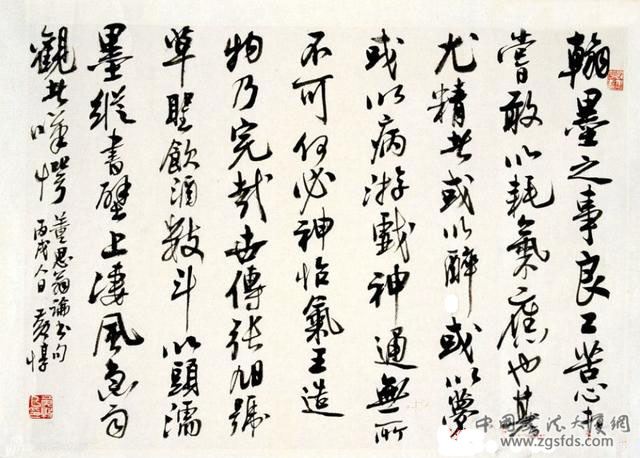 翰墨之事良工苦心未
嘗敢以耗氣應也其
尤精者或以醉或以夢
或以病游戲神通無所
不可何必神怡氣王造
物乃完哉世傳張旭號
草聖飲酒數斗以頭濡
墨縱書壁上凄風急雨
觀者嘆愕
董思翁論書句
丙戌人日黃惇
中国书法大厦網
www.zgsfds.com